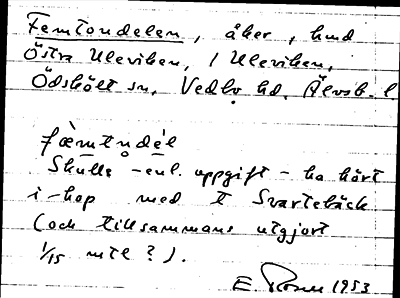 Femtondelen, åker, hmd
Östra Uleviken, / Uleviken,
Ödskölt sn, Vedbo hd, Älvsb. l.
fæ̀mtụndél
Skulle – enl. uppgift – ha hört
i-hop med t Svartebäck
(och tillsammans utgjort
1/15 mtl ?).
E. 1953